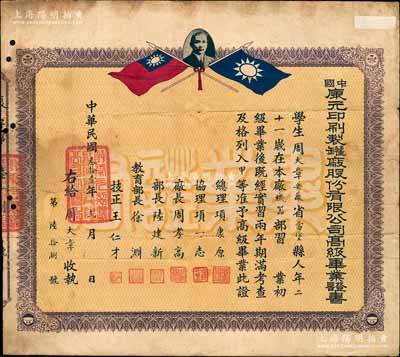 上海陽明拍賣
中國
康元印刷製罐廠股份有限公司高級畢業證書
學生周大章安徽省當塗縣人年二
十一歲在本廠機器部習 業初
級畢業後既經實習兩年期滿考查
及格列入甲等准予高級畢業此證
總經理項康原
協理項一志
廠長周孝高
部長陸建新
教育部長徐淵
技正王仁才
中華民國 年 月 日
右給周大章收執
第陸拾捌號